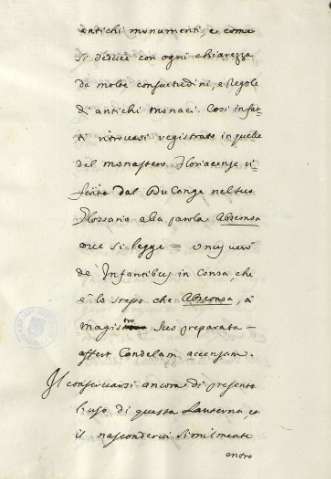 antichi monumenti, e come
si deduce con ogni chiarezza
da molte consuetudini, e Regole
di antichi monaci. Così infat
ti ritrovasi registrato in quelle
del monastero Floriacense ri
ferite dal Du Cange nel suo
Glossario a la parola Absconsa
ove si legge – Unus vero
de Infantibus in Consa, che
è lo stesso che Absconsa, a
magistro sus preparata –
affert Candelam accensam.
Il conservarsi ancora di presente
l'uso di questa Lanterna, et
il nascondervi similmente
entro